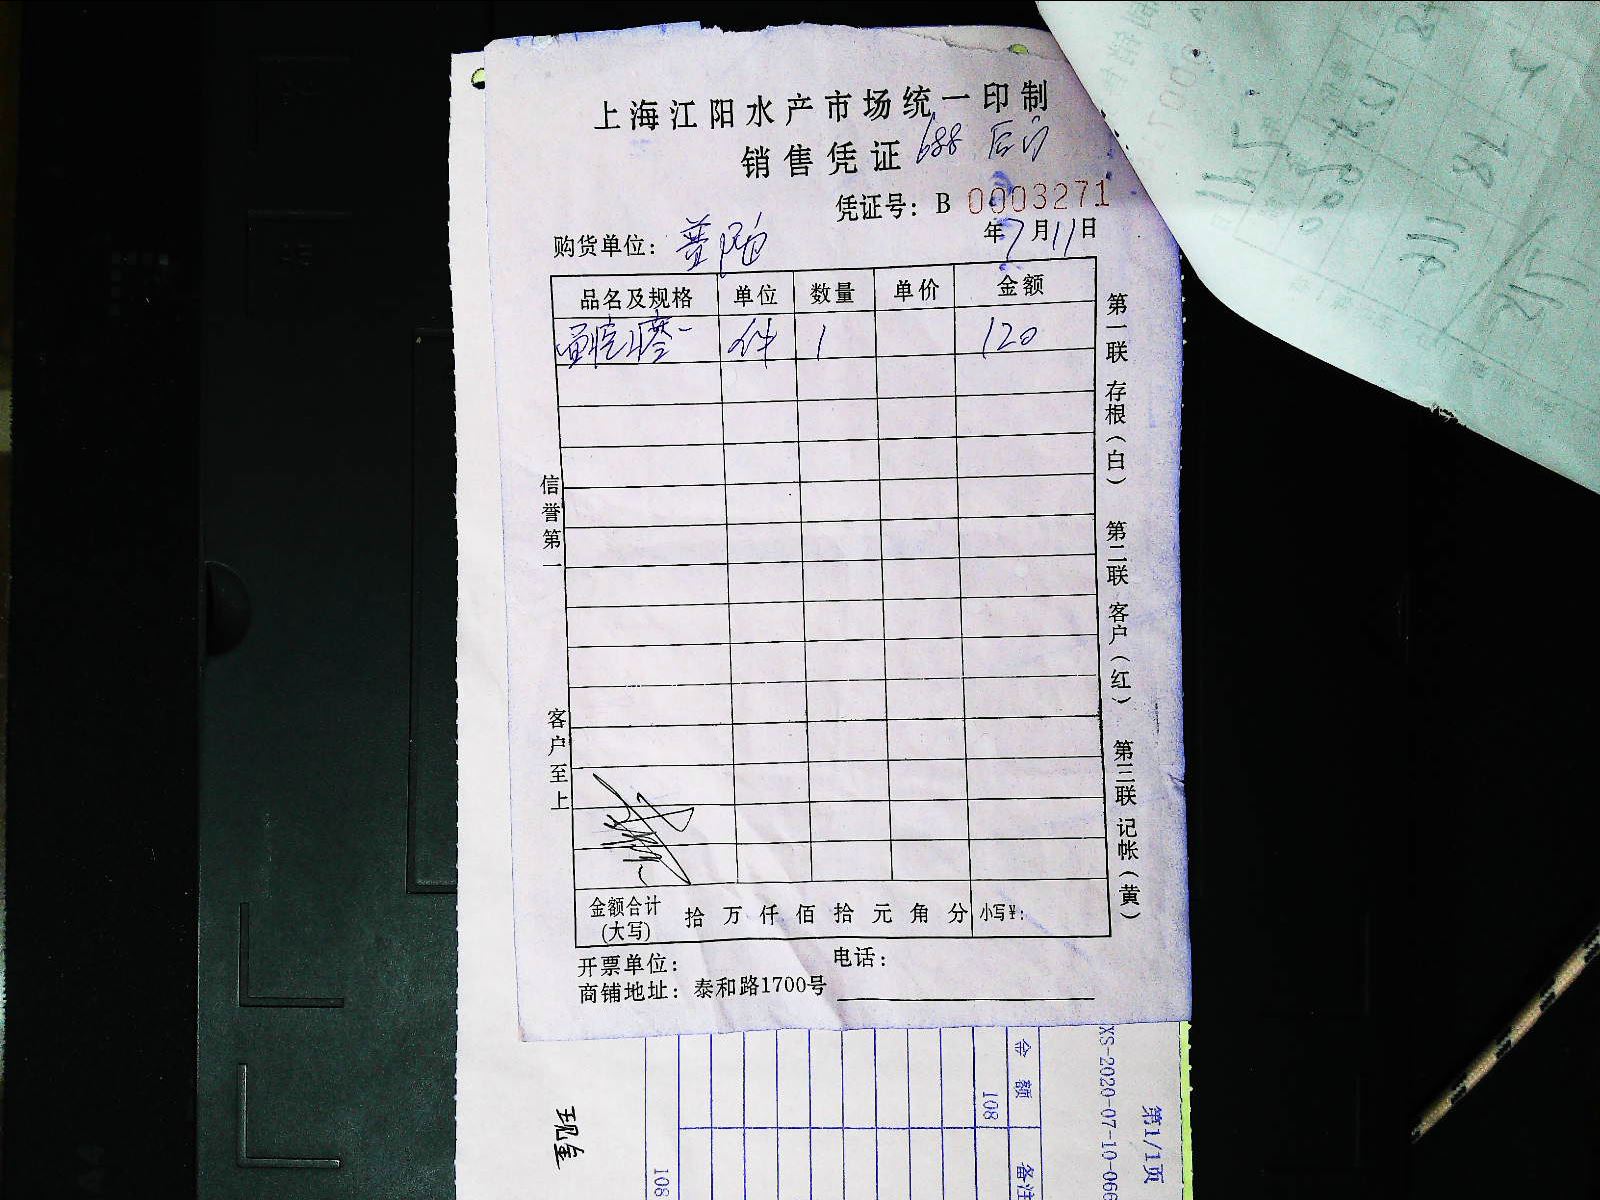 上海江阳水产市场统一印制
销售凭证 688 后门
凭证号：B 0003271
购货单位：普陀 年7月11日
品名及规格 单位 数量 单价 金额
件 1 120
信誉第一
客户至上
第一联 存根（白） 第二联 客户（红） 第三联 记帐（黄）
金额合计(大写) 拾 万 仟 佰 拾 元 角 分 小写¥：
开票单位： 电话：
商铺地址：泰和路1700号
XS-2020-07-10-066
第1/1页
金额
备注
108
108
现金